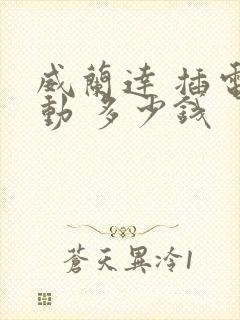 威蘭達 插電
動 多少錢
蒼天異冷1